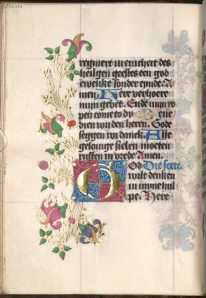 regneert in eenicheit des
heiligen geestes een god
ewelike sonder eynde. A
men. Here verhoere
mijn gebet. Ende mijn ro
pen come to dy. Bene
dien wij den heren. Gode
seggen wij danck. Alle
gelovige sielen moeten
rusten in vrede Amen.
God Die sexte
wilt denken
in mijne hul
pe. Here